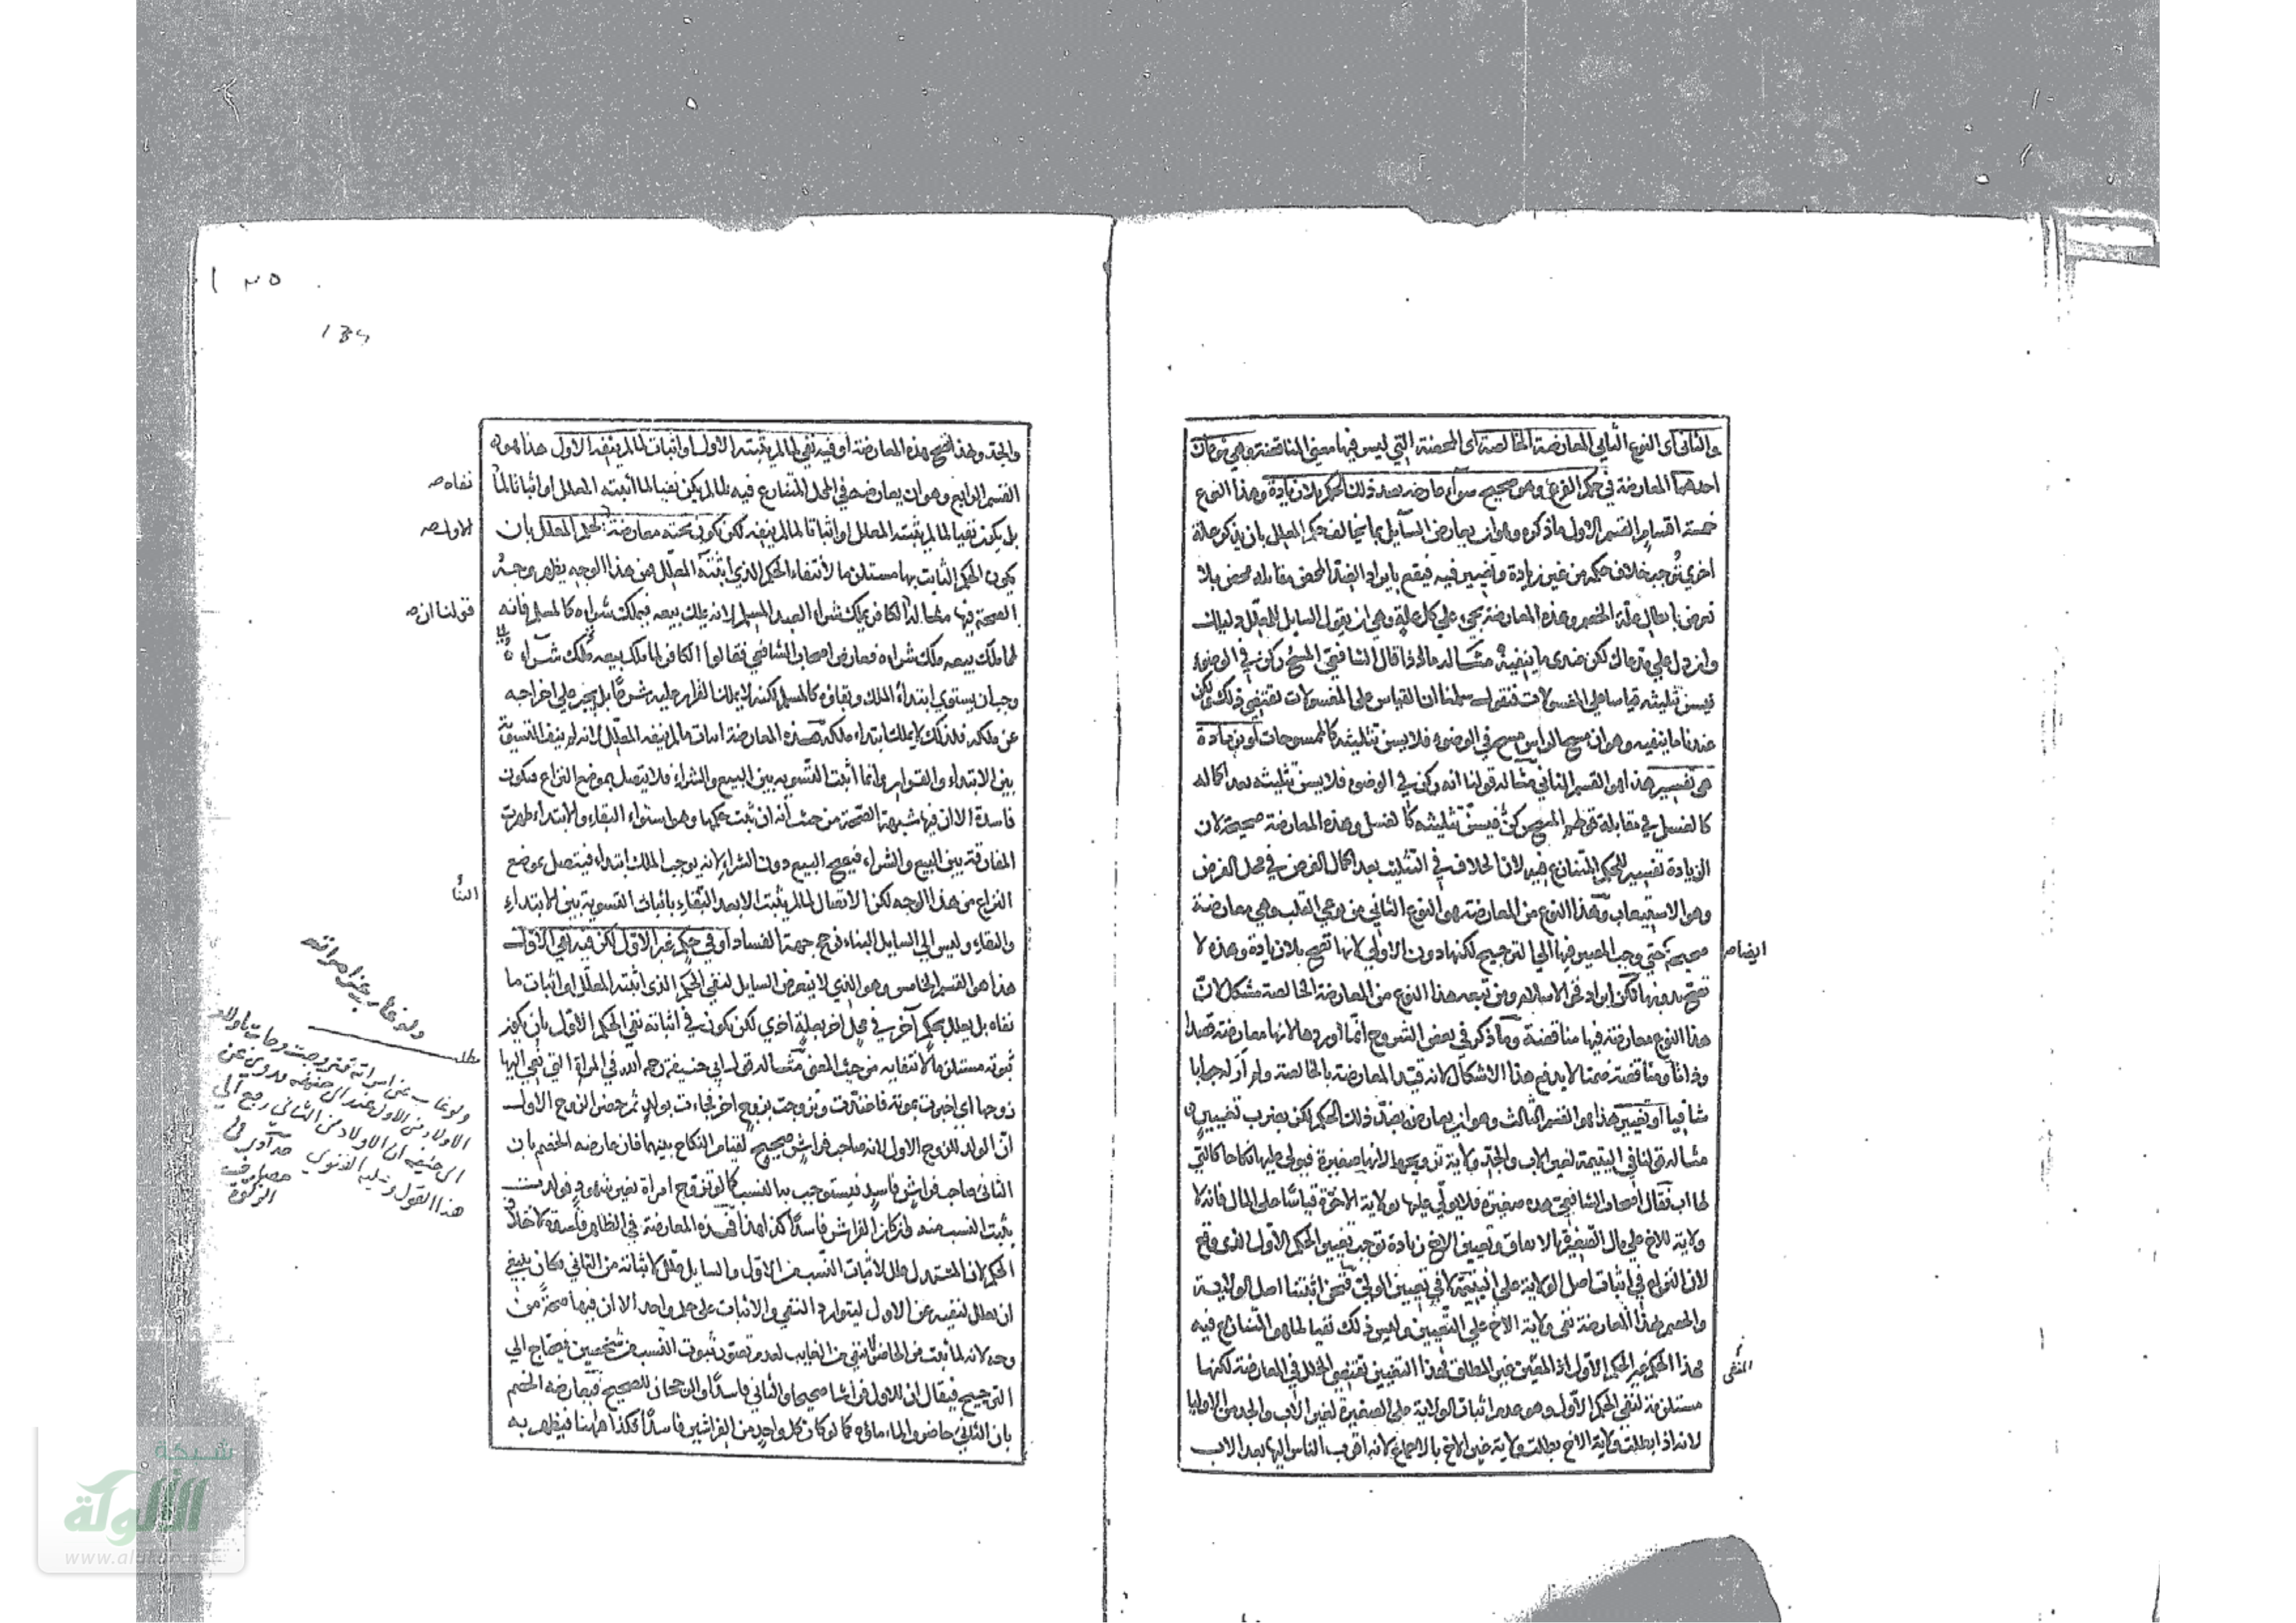 والثاني اى النوع الثاني المعارضة الخالصة اى المحضة التي ليس فيها معنى المناقضة وهي نوعان
احدهما المعارضة في حكم الفرع وهو صحيح سواء عارضه بضد ذلك الحكم بلا زيادة وهذا النوع
خمسة اقسام القسم الاول ما ذكره وهو ان يعارض السايل بما يخالف حكم المعلل بان يذكر علة
اخرى توجب خلاف حكمه من غير زيادة وتغيير فيه فيقع بايراد الضد المحض مقابلة محض بلا
تعرض بابطال علة الخصم وهذه المعارضة تجيء على كل علة وهي ان يقول السايل للمعلل دليلك
وان دل على مدعاك لكن عندى ما ينفيه مثاله ما اذا قال الشافعي المسح ركن في الوضوء
فيسن تثليثه قياسا على المغسولات فنقول سلمنا ان القياس على المغسولات يقتضي ذلك لكن
عندنا ما ينفيه وهو ان مسح الراس مسح في الوضوء فلا يسن تثليثه كالممسوحات او بزيادة
هي تفسير هذا هو القسم الثاني مثاله قولنا انه ركن في الوضوء فلا يسن تثليثه بعد اكماله
كالغسل في مقابلة قولهم المسح ركن فيسن تثليثه كالغسل وهذه المعارضة صحيحة لان
الزيادة تفسير للحكم المتنازع فيه لان الخلاف في التثليث بعد اكمال الفرض في محل الفرض
وهو الاستيعاب وهذا النوع من المعارضة هو النوع الثاني من نوعي القلب وهي معارضة
ايضا صحيحة حتى وجب المصير فيها الى الترجيح لكنها دون الاولى لانها تصح بلا زيادة وهذه لا
تصح بدونها لكن ايراد فخر الاسلام ومن تبعه هذا النوع من المعارضة الخالصة مشكل لان
هذا النوع معارضة فيها مناقضة وما ذكر في بعض الشروح انما اوردها لانها معارضة قصدا
وذاتا ومناقضة ضمنا لا يدفع هذا الاشكال لانه قيد المعارضة بالخالصة ولم ار له جوابا
شافيا او تغيير هذا هو القسم الثالث وهو ان يعارض بضد ذلك الحكم لكن بضرب تغيير
مثاله قولنا في اليتيمة لغير الاب والجد ولاية تزويجها لانها صغيرة فيولى عليها نكاحا كالتي
لها اب فقال اصحاب الشافعي هذه صغيرة فلا يولى عليها بولاية الاخوة قياسا على المال فانه لا
ولاية للاخ على مال الصغيرة بالاتفاق وتعيين الاخ زيادة توجب تغيير الحكم الاول الذى وقع
لان النزاع في اثبات اصل الولاية على اليتيمة لا في تعيين الولي فنحن اثبتنا اصل الولاية
والخصم بهذا المعارضة نفى ولاية الاخ على التعيين وليس ذلك نفيا لما هو المتنازع فيه
فهذا الحكم غير الحكم الاول اذ المعين غير المطلق فهذا التغيير يقتضي الخلل في المعارضة لكنها
المنفى
مستلزمة لنفي الحكم الاول وهو عدم اثبات الولاية على الصغيرة لغير الاب والجد من الاوليا
لانه اذا بطلت ولاية الاخ بطلت ولاية غير الاخ بالاجماع لانه اقرب الناس اليها بعد الاب
١٣٥
134
والجد ولهذا تصح هذه المعارضة او فيه نفي لما لم يثبته الاول او اثبات لما لم ينفه الاول هذا هو
القسم الرابع وهو ان يعارضه في المحل المتنازع فيه بما لم يكن نفيا لما اثبته المعلل او اثباتا لما
نفاه صح
بل يكون نفيا لما لم يثبته المعلل او اثباتا لما لم ينفه لكن يكون تحته معارضة لحكم المعلل بان
الاول صح
يكون الحكم الثابت بها مستلزما لانتفاء الحكم الذي اثبته المعلل فمن هذا الوجه يظهر وجه
الصحة فيها مثاله الكافر يملك شراء العبد المسلم لانه يملك بيعه فيملك شراءه كالمسلم فانه
قولنا ان صح
لما ملك بيعه ملك شراءه فعارض اصحاب الشافعي فقالوا الكافر لما ملك بيعه ملك شراءه
وجب ان يستوي ابتداء الملك وبقاؤه كالمسلم لكنه لا يملك القرار عليه شرعا بل يجبر على اخراجه
عن ملكه فلذلك لا يملك ابتداء ملكه فهذه المعارضة اثبات ما لم ينفه المعلل لانه لم ينف التسوية
بين الابتداء والقرار وانما اثبت التسوية بين البيع والشراء فلا يتصل بموضع النزاع فتكون
فاسدة الا ان فيها شبهة الصحة من حيث انه ان ثبت حكمها وهو استواء البقاء والابتداء ظهرت
المفارقة بين البيع والشراء فيصح البيع دون الشراء لانه يوجب الملك ابتداء فيتصل بموضع
النزاع من هذا الوجه لكن الاتصال لما لم يثبت الا بعد البقاء باثبات التسوية بين الابتداء
والبقاء وليس الى السايل البناء فرجح جهة الفساد او في حكم غير الاول لكن فيه نفي الاول
هذا هو القسم الخامس وهو الذي لا يتعرض السايل لنفي الحكم الذى اثبته المعلل او اثبات ما
نفاه بل يعلل بحكم آخر في محل آخر بعلة اخرى لكن يكون في اثباته نفي الحكم الاول بان يكون
ثبوته مستلزما لانتفايه من حيث المعنى مثاله قول ابي حنيفة رحمه الله في المراة التي نعي اليها
زوجها اي اخبرت بموته فاعتدت وتزوجت بزوج اخر فجاءت بولد ثم حضر الزوج الاول
ان الولد للزوج الاول لانه صاحب فراش صحيح لقيام النكاح بينهما فان عارضه الخصم بان
الثاني صاحب فراش فاسد فيستوجب به النسب كما لو تزوج امراة بغير شهود فولدت
يثبت النسب منه وان كان الفراش فاسدا كذا هذا فهذه المعارضة في الظاهر فاسدة لاختلاف
الحكم لان المستدل علل لاثبات النسب من الاول والسايل علل لاثباته من الثاني وكان ينبغي
ان يعلل لنفيه عن الاول ليتوارد النفي والاثبات على محل واحد الا ان فيها صحة من
وجه لانه لما ثبت من الحاضر انتفى من الغايب لعدم تصور ثبوت النسب من شخصين فيحتاج الى
الترجيح فيقال ان للاول فراشا صحيحا والثاني فاسدا والرجحان للصحيح فيعارضه الخصم
بان الثاني حاضر والماء ماؤه كما لو كان كل واحد من الفراشين فاسدا فكذا هاهنا فيظهر به
ولو غاب عن امراته
مطلب
ولو غاب عن امراته فتزوجت وجاءت باولاد
الاولاد من الاول عند ابي حنيفة وروي عن
ابي حنيفة ان الاولاد من الثاني رجع الى
هذا القول وعليه الفتوى
شبكة
الألوكة
www.alukah.net